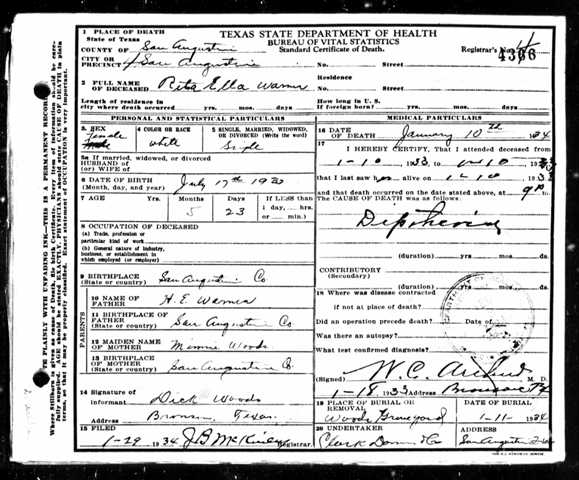 TEXAS STATE DEPARTMENT OF HEALTH
BUREAU OF VITAL STATISTICS
Standard Certificate of Death.
Registrar's No.
4306
1 PLACE OF DEATH
State of Texas
COUNTY OF San Augustine
CITY OR PRECINCT San Augustine No. Street
2 FULL NAME OF DECEASED Rita Ella Warner
Residence No. Street
Length of residence in city where death occurred yrs. mos. days
How long in U. S. if foreign born? yrs. mos. days
PERSONAL AND STATISTICAL PARTICULARS
3. SEX
Female
Male
4 COLOR OR RACE
White
5 SINGLE, MARRIED, WIDOWED, OR DIVORCED (Write the word)
Single
5a If married, widowed, or divorced
HUSBAND of
(or) WIFE of
6 DATE OF BIRTH
(Month, day, and year) July 17th 1933
7 AGE Years Months Days If LESS than
1 day, hrs.
or min.
5 23
8 OCCUPATION OF DECEASED
(a) Trade, profession or
particular kind of work
(b) General nature of industry,
business, or establishment in
which employed (or employer)
9 BIRTHPLACE
(State or country) San Augustine Co
PARENTS
10 NAME OF FATHER H. E. Warner
11 BIRTHPLACE OF FATHER
(State or country) San Augustine Co
12 MAIDEN NAME OF MOTHER Minnie Woods
13 BIRTHPLACE OF MOTHER
(State or country) San Augustine Co.
14 Signature of informant Dick Woods
Address Bronson, Texas
15 FILED
1-29 1934 J B McKinley Registrar.
MEDICAL PARTICULARS
16 DATE OF DEATH January 10th 1934
17
I HEREBY CERTIFY, That I attended deceased from
1-10 1933 to 1-10 1933
that I last saw h alive on 1-10 1933
and that death occurred on the date stated above, at 9 P M
The CAUSE OF DEATH was as follows:
Diptheria
(duration) yrs. mos. days
CONTRIBUTORY
(Secondary)
(duration) yrs. mos. days
18 Where was disease contracted
if not at place of death?
Did an operation precede death? Date of
Was there an autopsy?
What test confirmed diagnosis?
(Signed) W. C. M. D.
1-18 1933 Address Bronson Tx
19 PLACE OF BURIAL OR REMOVAL
Woods Graveyard
DATE OF BURIAL
1-11- 1934
20 UNDERTAKER
Clark Co
ADDRESS
San Augustine